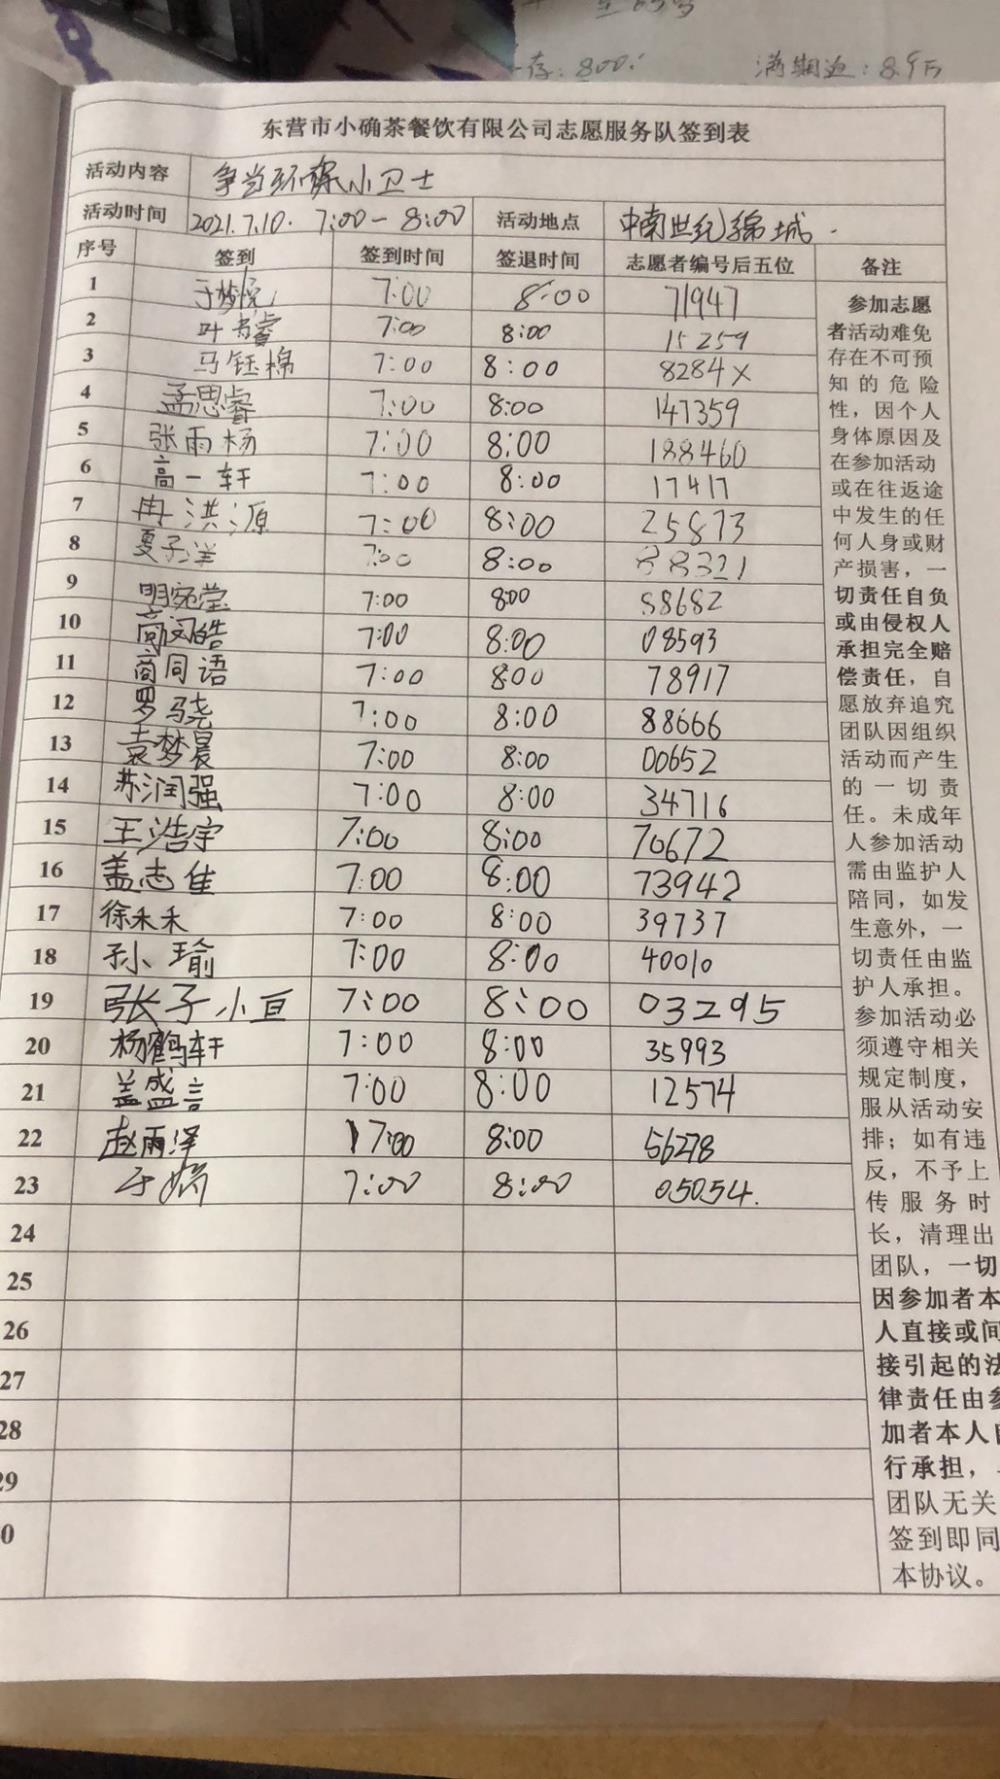 存:800.
满期边:8.9万
东营市小确茶餐饮有限公司志愿服务队签到表
活动内容 争当环保小卫士
活动时间 2021.7.10. 7:00-8:00 活动地点 中南世纪锦城.
序号 签到 签到时间 签退时间 志愿者编号后五位 备注
1 于梦悦 7:00 8:00 71947
2 叶书睿 7:00 8:00 15259
3 马钰棉 7:00 8:00 8284X
4 孟思睿 7:00 8:00 147359
5 张雨杨 7:00 8:00 188460
6 高一轩 7:00 8:00 17417
7 冉洪源 7:00 8:00 25873
8 夏子洋 7:00 8:00 88321
9 明宛莹 7:00 8:00 58682
10 商闵皓 7:00 8:00 08593
11 商同语 7:00 8:00 78917
12 罗骁 7:00 8:00 88666
13 袁梦晨 7:00 8:00 00652
14 苏润强 7:00 8:00 34716
15 王浩宇 7:00 8:00 70672
16 盖志佳 7:00 8:00 73942
17 徐禾禾 7:00 8:00 39737
18 孙瑜 7:00 8:00 40010
19 张子小亘 7:00 8:00 03295
20 杨鹤轩 7:00 8:00 35993
21 盖盛言 7:00 8:00 12574
22 赵雨泽 17:00 8:00 56278
23 于娟 7:00 8:00 05054.
24
25
26
27
28
29
0
参加志愿
者活动难免
存在不可预
知的危险
性，因个人
身体原因及
在参加活动
或在往返途
中发生的任
何人身或财
产损害，一
切责任自负
或由侵权人
承担完全赔
偿责任，自
愿放弃追究
团队因组织
活动而产生
的一切责
任。未成年
人参加活动
需由监护人
陪同，如发
生意外，一
切责任由监
护人承担。
参加活动必
须遵守相关
规定制度，
服从活动安
排；如有违
反，不予上
传服务时
长，清理出
团队，一切
因参加者本
人直接或间
接引起的法
律责任由参
加者本人自
行承担，
团队无关
签到即同
本协议。